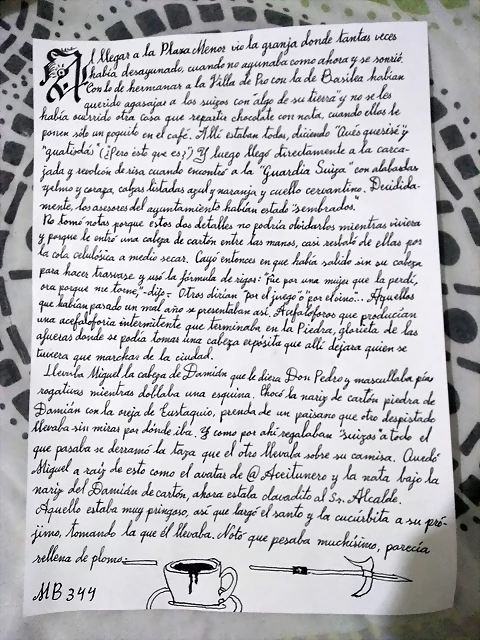 Al llegar a la Plaza Menor vio la granja donde tantas veces
había desayunado, cuando no ayunaba como ahora y se sonrió.
Con lo de hermanar a la Villa de Pro con la de Basilea habían
querido agasajar a los suizos con "algo de su tierra" y no se les
había ocurrido otra cosa que repartir chocolate con nata, cuando ellos le
ponen sólo un poquito en el café. Allí estaban todos, diciendo
"(¿Pero ésto que es?)" Y luego llegó directamente a la carca-
jada y revolcón de risa cuando encontró a la "Guardia Suiza" con alabardas
yelmo y coraza, calzas listadas azul y naranja y cuello cervantino. Decidida-
mente, los asesores del ayuntamiento habían estado "sembrados".
No tomó notas porque estos dos detalles no podría olvidarlos mientras viviera
y porque le entró una cabeza de cartón entre las manos, casi resbaló de ellas por
la cola celulósica a medio secar. Cayó entonces en que había salido sin su cabeza
para hacer trasvase y usó la fórmula de rigor: "fue por una mujer que la perdí,
ora porque me torne," -dijo-. Otros dirían "por el juego" ó "por el vino"... Aquellos
que habían pasado un mal año se presentaban así. Acéfaloforos que producían
una acefaloforia intermitente que terminaba en la Piedra, glorieta de las
afueras donde se podía tomar una cabeza expósita que allí dejara quien se
tuviera que marchar de la ciudad.
Llevaba Miguel la cabeza de Damián que le diera Don Pedro y mascullaba pías
rogativas mientras doblaba una esquina. Chocó la nariz de cartón piedra de
Damián con la oreja de Eustaquio, prenda de un paisano que otro despistado
llevaba sin mirar por dónde iba. Y como por ahí regalaban "suizos" a todo el
que pasaba se derramó la taza que el otro llevaba sobre su camisa. Quedó
Miguel a raíz de esto como el avatar de @Aceitunero y la nata bajo la
nariz del Damián de cartón, ahora estaba clavadito al Sr. Alcalde.
Aquello estaba muy pringoso, así que largó el santo y la cucúrbita a su pró-
jimo, tomando la que él llevaba. Notó que pesaba muchísimo, parecía
rellena de plomo.
MB 344